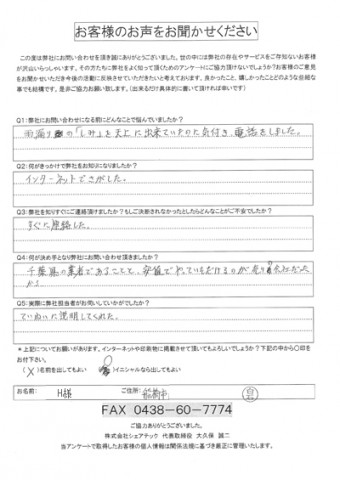 お客様のお声をお聞かせください
この度は弊社にお問い合わせを頂き誠にありがとうございました。世の中には弊社の存在やサービスをご存知ないお客様
が沢山いらっしゃいます。その方たちに弊社をよく知って頂くためのアンケートにご協力頂けないでしょうか？お客様のご意見
をお聞かせいただき今後の活動に反映させていただきたいと考えております。良かったこと、嬉しかったことどのような些細な
事でも結構です。是非ご協力お願い致します。(出来るだけ具体的に書いて頂ければ幸いです)
Q1：弊社にお問い合わせになる前にどんなことで悩んでいましたか？
雨漏りの「しみ」を天上に出来ていたのに気付き、電話をしました。
Q2：何がきっかけで弊社をお知りになりましたか？
インターネットでさがした。
Q3：弊社を知りすぐにご連絡頂けましたか？もしご決断されなかったとしたらどんなことがご不安でしたか？
すぐ連絡した。
Q4：何が決め手となり弊社にお問い合わせ頂きましたか？
千葉県の業者であることと、
から。
Q5：実際に弊社担当者がお伺いしていかがでしたか？
ていねいに説明してくれた。
＊上記についてお願いがあります。インターネットや印刷物に掲載させて頂いてもよろしいでしょうか？下記の中から○印を
お付下さい。
(X)名前を出してもよい イニシャルなら出してもよい
お名前： H様 ご住所： 船橋市
FAX 0438-60-7774
ご協力ありがとうございました。
株式会社シェアテック 代表取締役 大久保 誠二
当アンケートで取得したお客様の個人情報は関係法規に基づき厳正に管理いたします。